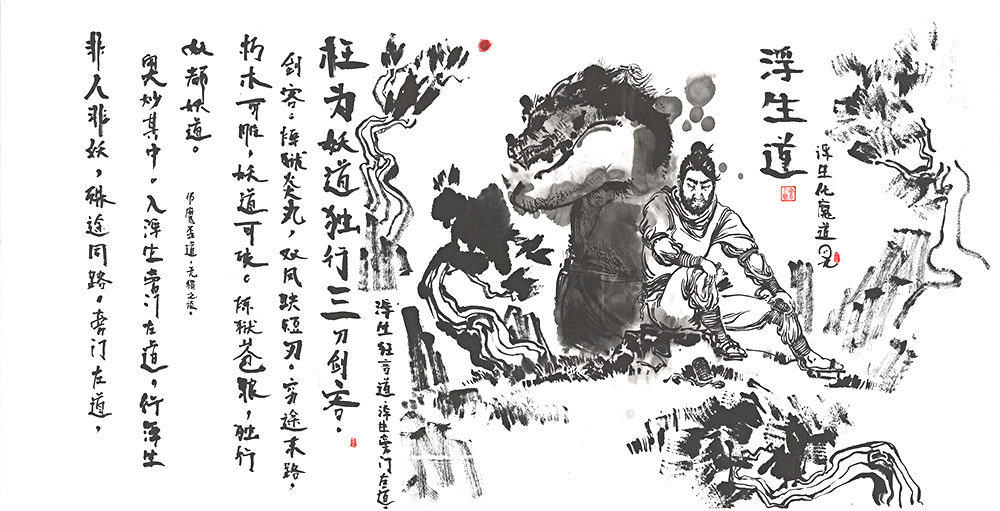 浮生道
浮生化魔道
浮生狂言道·浮生旁门左道。
枉为妖道独行三刀剑客。
剑客：炼狱炎丸，双风跌短刃。穷途末路，
朽木可雕，妖道可破。炼狱苍狼，独行
妖道。
邪魔歪道·无稽之谈。
奥妙其中。入浮生旁门左道，行浮生
非人非妖，殊途同路。旁门左道，